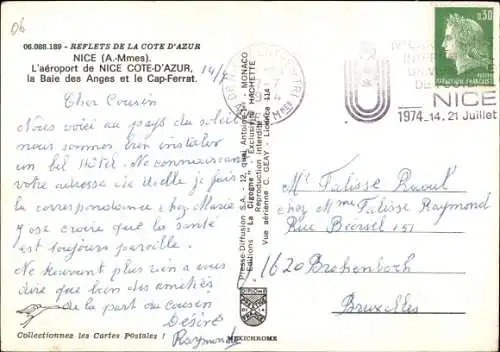 06
06.088.189 - REFLETS DE LA COTE D'AZUR
NICE (A.-Mmes).
L'aéroport de NICE COTE-D'AZUR,
la Baie des Anges et le Cap-Ferrat.
14/7
Cher Cousin
Nous voici au pays du soleil
nous sommes bien installer
un bel Hôtel. Ne connaissant
votre adresse
la correspondance chez Marie
J'ose croire que la santé
est toujours pareille.
Ne trouvant plus rien a vous
dire que bien des amitiés
de la part du cousin
Désiré
Raymonde
Collectionnez les Cartes Postales !
Presse-Diffusion S.A. 12, quai Antoine 1er MONACO
Editions "La Cigogne" - Exclusivité HACHETTE
Reproduction interdite
Vue aérienne C. GEAY - Licence IIA
MEXICHROME
0.30
NICE
1974 14.21 Juillet
Mr Falisse Raoul
chez Mme Falisse Raymond
Rue 151
1620
Bruxelles